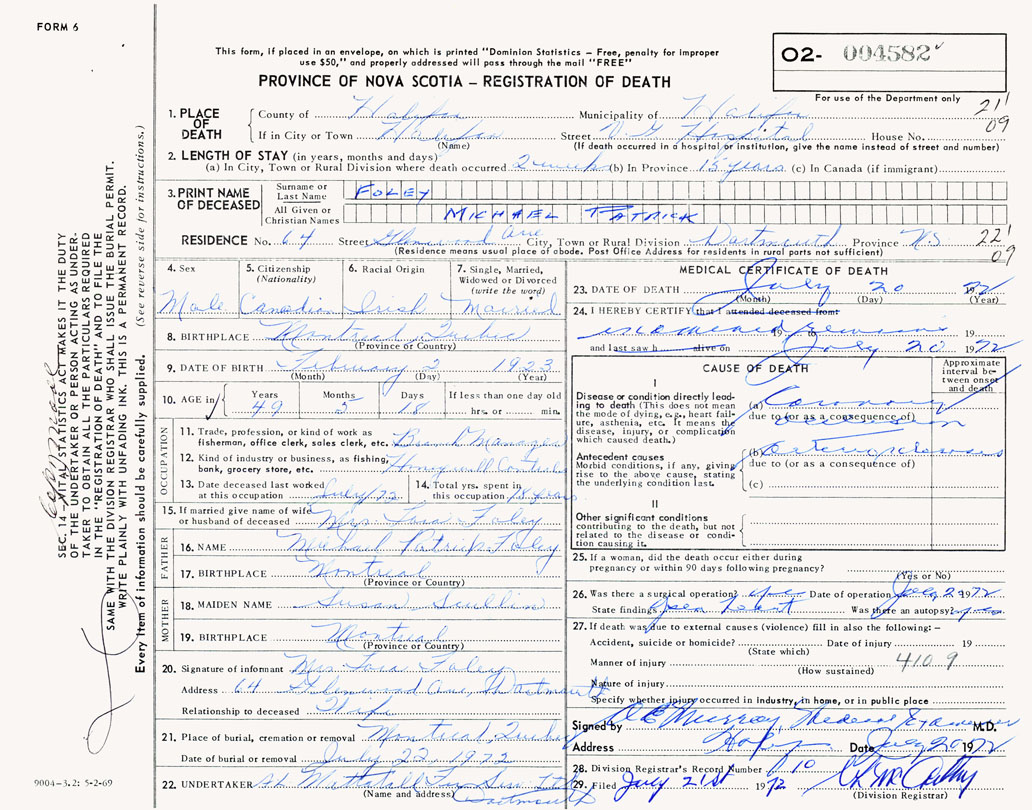 FORM 6
This form, if placed in an envelope, on which is printed "Dominion Statistics – Free, penalty for improper
use $50," and properly addressed will pass through the mail "FREE"
O2- 004582
PROVINCE OF NOVA SCOTIA – REGISTRATION OF DEATH
For use of the Department only
21
09
1. PLACE OF DEATH
County of Halifax Municipality of Halifax
If in City or Town Halifax Street V.G. Hospital House No.
(Name) (If death occurred in a hospital or institution, give the name instead of street and number)
2. LENGTH OF STAY (in years, months and days)
(a) In City, Town or Rural Division where death occurred 2 weeks (b) In Province 15 years (c) In Canada (if immigrant)
3. PRINT NAME OF DECEASED
Surname or Last Name FOLEY
All Given or Christian Names MICHAEL PATRICK
RESIDENCE No. 64 Street Glenwood Ave City, Town or Rural Division Dartmouth Province N.S
(Residence means usual place of abode. Post Office Address for residents in rural parts not sufficient)
22
09
4. Sex
Male
5. Citizenship
(Nationality)
Canadian
6. Racial Origin
Irish
7. Single, Married,
Widowed or Divorced
(write the word)
Married
8. BIRTHPLACE Montreal Quebec
(Province or Country)
9. DATE OF BIRTH February 2 1923
(Month) (Day) (Year)
10. AGE in
Years Months Days If less than one day old
49 5 18 hrs. or min.
OCCUPATION
11. Trade, profession, or kind of work as
fisherman, office clerk, sales clerk, etc. Branch Manager
12. Kind of industry or business, as fishing,
bank, grocery store, etc. Honeywell Controls
13. Date deceased last worked
at this occupation July/72
14. Total yrs. spent in
this occupation 18 years
15. If married give name of wife
or husband of deceased Mrs. Foley
FATHER
16. NAME Michael Patrick Foley
17. BIRTHPLACE Montreal
(Province or Country)
MOTHER
18. MAIDEN NAME Susan Scullion
19. BIRTHPLACE Montreal
(Province or Country)
20. Signature of informant Mrs Foley
Address 64 Glenwood Ave, Dartmouth
Relationship to deceased Wife
21. Place of burial, cremation or removal Montreal, Quebec
Date of burial or removal July 22 1972
22. UNDERTAKER
(Name and address)
Dartmouth
MEDICAL CERTIFICATE OF DEATH
23. DATE OF DEATH July 20 1972
(Month) (Day) (Year)
24. I HEREBY CERTIFY that I attended deceased from
19 to 19
and last saw h alive on July 20 1972
CAUSE OF DEATH
Approximate
interval be-
tween onset
and death
I
Disease or condition directly lead-
ing to death (This does not mean
the mode of dying, e.g., heart fail-
ure, asthenia, etc. It means the
disease, injury, or complication
which caused death.)
(a) Coronary
due to (or as a consequence of)
occlusion
Antecedent causes
Morbid conditions, if any, giving
rise to the above cause, stating
the underlying condition last.
(b)
due to (or as a consequence of)
(c)
II
Other significant conditions
contributing to the death, but not
related to the disease or condi-
tion causing it.
25. If a woman, did the death occur either during
pregnancy or within 90 days following pregnancy?
(Yes or No)
26. Was there a surgical operation? yes Date of operation July 2 1972
State findings Open Heart Was there an autopsy? yes
27. If death was due to external causes (violence) fill in also the following: –
Accident, suicide or homicide? Date of injury 19
(State which)
Manner of injury 410 9
(How sustained)
Nature of injury
Specify whether injury occurred in industry, in home, or in public place
Signed by Murray Medical Examiner M.D.
Address Date July 20 1972
28. Division Registrar's Record Number 10
29. Filed July 21st 1972
(Division Registrar)
SEC. 14 – VITAL STATISTICS ACT MAKES IT THE DUTY
OF THE UNDERTAKER OR PERSON ACTING AS UNDER-
TAKER TO OBTAIN ALL THE PARTICULARS REQUIRED
IN THE "REGISTRATION OF DEATH" AND TO FILE THE
SAME WITH THE DIVISION REGISTRAR WHO SHALL ISSUE THE BURIAL PERMIT.
WRITE PLAINLY WITH UNFADING INK. THIS IS A PERMANENT RECORD.
Every item of information should be carefully supplied. (See reverse side for instructions.)
9004-3.2: 5-2-69